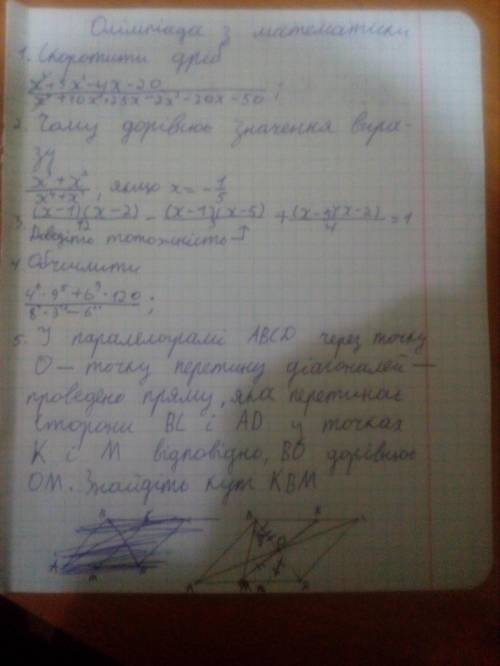 Олімпіада з математики
1. Скоротити дріб
x³+5x²-4x-20
x³+10x²+25x-2x²-20x-50 ;
2. Чому дорівнює значення вира-
зу
, якщо x = -1/5
3. (x-1)(x-2)/12 - (x-1)(x-5)/3 + (x-5)(x-2)/4 = 1
Доведіть тотожність
4. Обчислити
+6⁹·120 ;
5. У паралелограмі ABCD через точку
O — точку перетину діагоналей —
проведено пряму, яка перетинає
сторони BC і AD у точках
K і M відповідно, BO дорівнює
OM. Знайдіть кут KBM